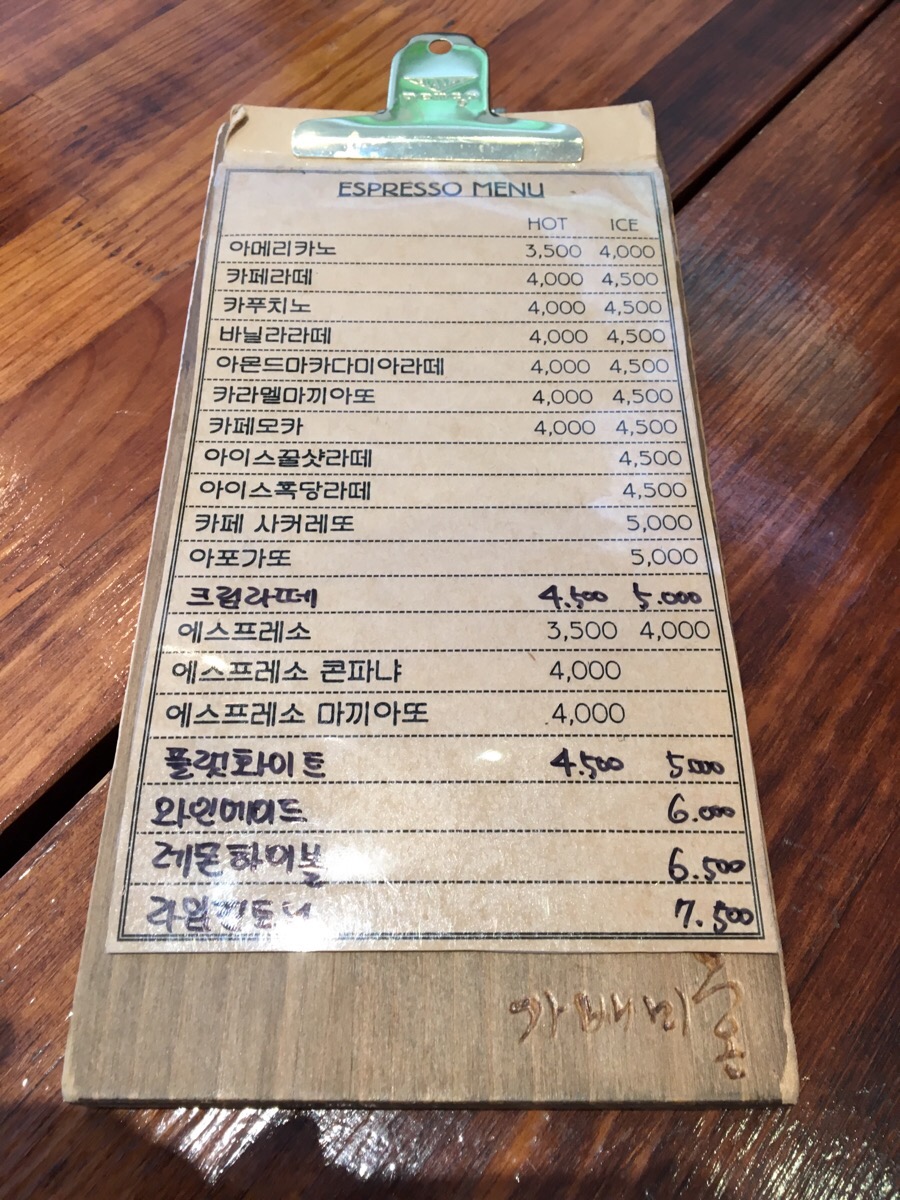 ESPRESSO MENU
HOT ICE
아메리카노 3,500 4,000
카페라떼 4,000 4,500
카푸치노 4,000 4,500
바닐라라떼 4,000 4,500
아몬드마카다미아라떼 4,000 4,500
카라멜마끼아또 4,000 4,500
카페모카 4,000 4,500
아이스꿀샷라떼 4,500
아이스흑당라떼 4,500
카페 사커레또 5,000
아포가또 5,000
크림라떼 4.500 5.000
에스프레소 3,500 4,000
에스프레소 콘파냐 4,000
에스프레소 마끼아또 4,000
플랫화이트 4.500 5000
와인에이드 6.000
레몬하이볼 6.500
라임진토닉 7.500